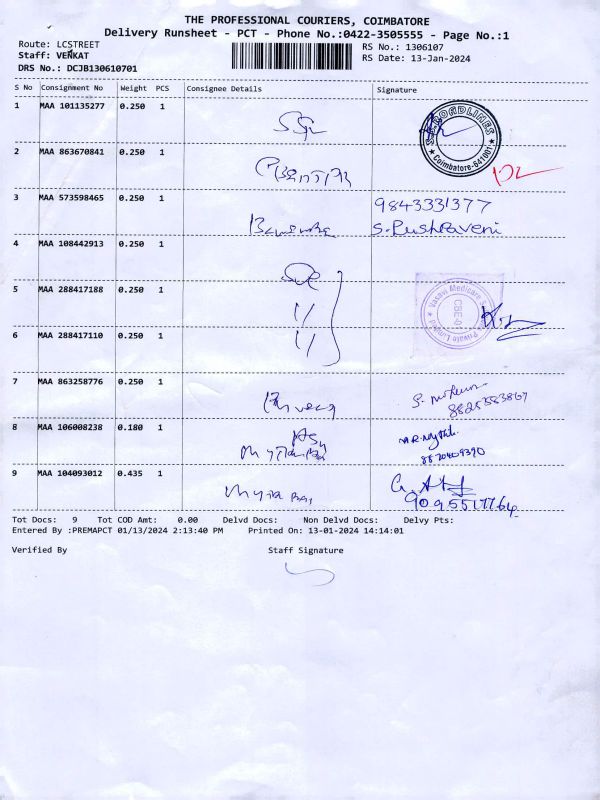 THE PROFESSIONAL COURIERS, COIMBATORE
Delivery Runsheet - PCT - Phone No.:0422-3505555 - Page No.:1
Route: LCSTREET
RS No.: 1306107
Staff: VENKAT
RS Date: 13-Jan-2024
DRS No.: DCJB130610701
S No Consignment No Weight PCS Consignee Details Signature
1 MAA 101135277 0.250 1
ROADLINES
Coimbatore-641001
2 MAA 863670841 0.250 1
3 MAA 573598465 0.250 1 9843331377
S. Pushpaveni
4 MAA 108442913 0.250 1
5 MAA 288417188 0.250 1
Vasavi Medicare
Private Limited
CBE-9
6 MAA 288417110 0.250 1
7 MAA 863258776 0.250 1
8825583867
8 MAA 106008238 0.180 1
8870409390
9 MAA 104093012 0.435 1
9095517764
Tot Docs: 9 Tot COD Amt: 0.00 Delvd Docs: Non Delvd Docs: Delvy Pts:
Entered By :PREMAPCT 01/13/2024 2:13:40 PM Printed On: 13-01-2024 14:14:01
Verified By Staff Signature